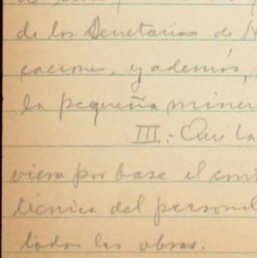 de los Secretarios de H
caciones, y además,
la pequeña miner
III.- Que la
viera por base el
técnica del personal
todas las obras.